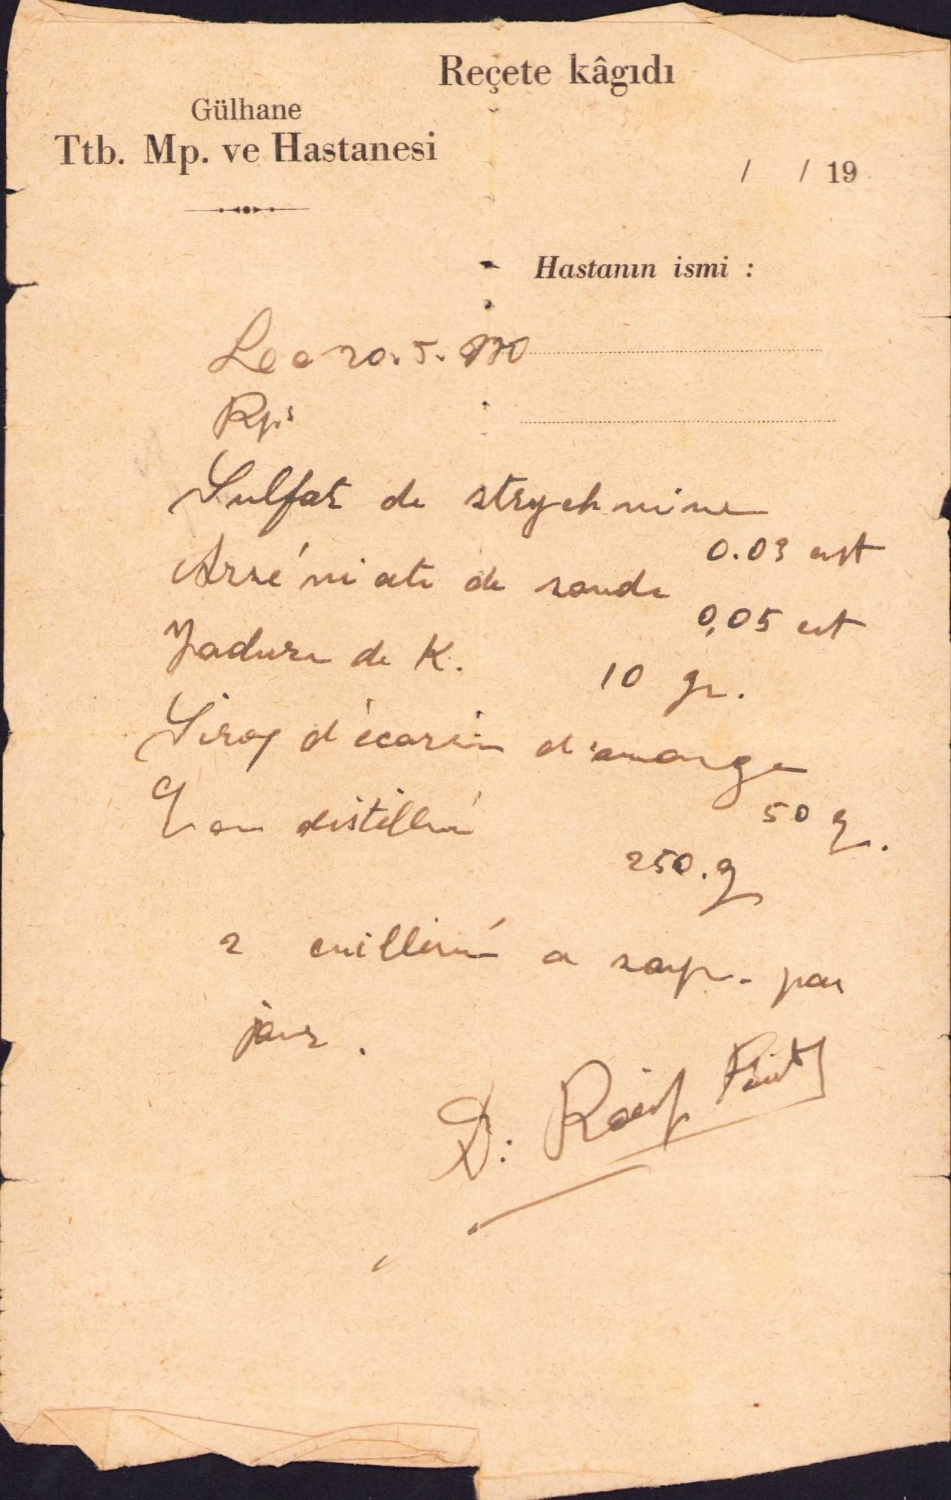 Reçete kâgıdı
Gülhane
Ttb. Mp. ve Hastanesi
/ / 19
Hastanın ismi :
Le 20.5.930
Rp:
Sulfat de strychnine
0.03 cst
Arséniate de soude
0,05 cst
Jadure de K. 10 gr.
Sirop d'écorce d'orange
50 g.
Eau distillée
250.g
2 cuillerée a soup. par
jour.
D: Râif